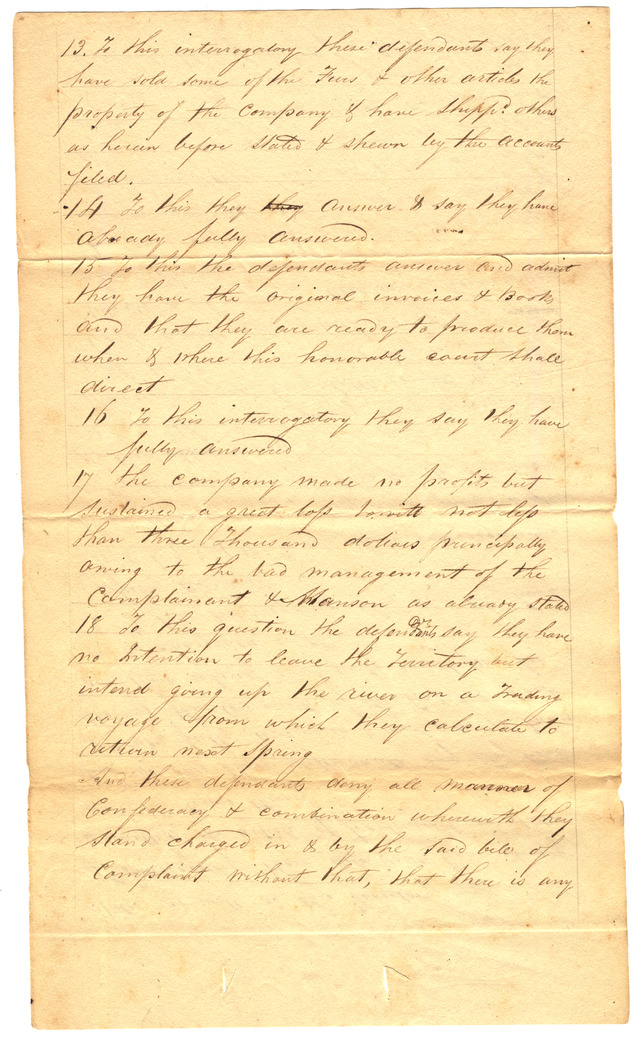 13. To this interrogatory these defendants say they
have sold some of the Furs & other articles the
property of the Company & have shippd. others
as herein before stated & shewn by the accounts
filed.
14 To this they they answer & say they have
already fully answered.
15 To this the defendants answer and admit
they have the original invoices & Books
and that they are ready to produce them
when & where this honorable court shall
direct
16 To this interrogatory they say they have
fully answered
17 the company made no profits but
sustained a great loss towitt not less
than three Thousand dollars principally
owing to the bad management of the
Complainant & Manson as already stated
18 To this question the defendants say they have
no Intention to leave the Territory but
intend going up the river on a Trading
voyage from which they calculate to
return next Spring
And these defendants deny all manner of
Confederacy & combination wherewith they
stand charged in & by the said bill of
Complaint without that, that there is any